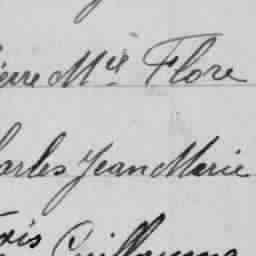 ierre Mie Flore
arles Jean Marie
ois Guillaume